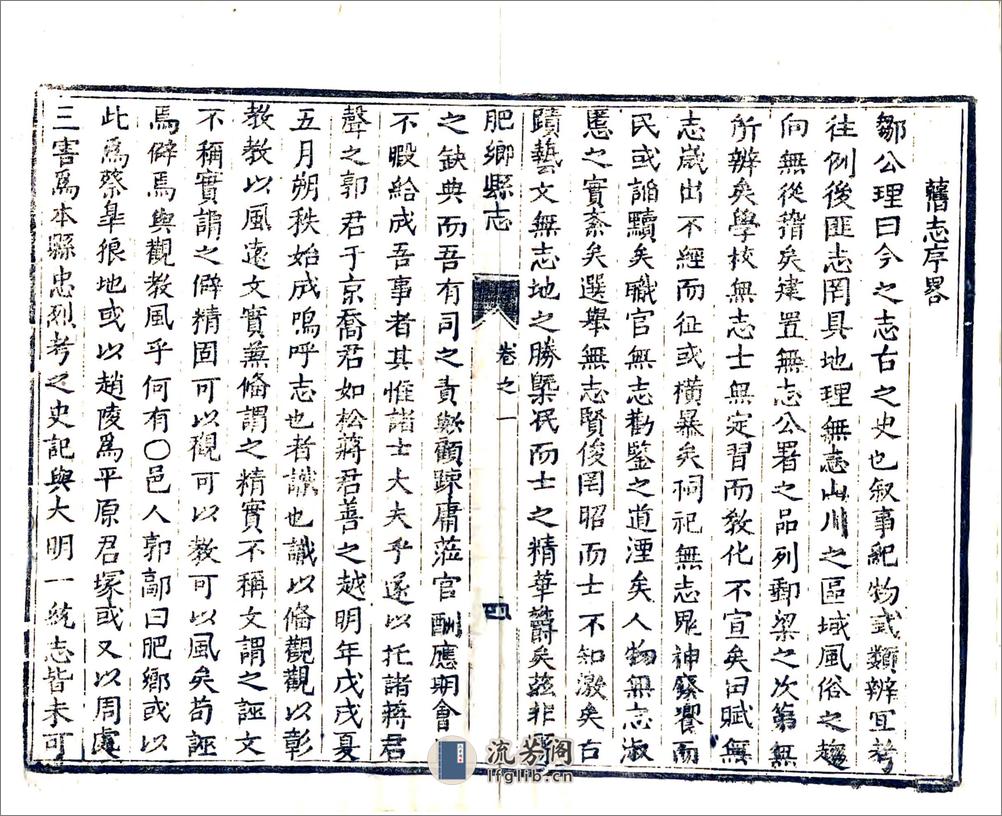 舊志序畧
鄒公理曰今之志古之史也叙事紀物式類辨宜考
往例後匪志罔具地理無志山川之區域風俗之趨
向無從稽矣建置無志公署之品列郵梁之次第無
所辨矣學校無志士無定習而敎化不宣矣田賦無
志歲出不經而征或橫暴矣祠祀無志鬼神祭饗而
民或諂黷矣職官無志勸鑒之道湮矣人物無志淑
慝之實紊矣選舉無志賢俊罔昭而士不知激矣古
蹟藝文無志地之勝槩民而士之精華欝矣茲非縣
肥鄉縣志
卷之一
四
之缺典而吾有司之責歟顧踈庸蒞官酬應期會
不暇給成吾事者其惟諸士大夫乎遂以托諸蔣君
聲之郭君于京喬君如松蔣君善之越明年戊戌夏
五月朔秩始成嗚呼志也者識也識以俻觀觀以彰
教教以風遠文實兼俻謂之精實不稱文謂之誣文
不稱實謂之僻精固可以觀可以教可以風矣苟誣
焉僻焉與觀教風乎何有〇邑人郭鄗曰肥鄉或以
此爲蔡臯狼地或以趙陵爲平原君塚或又以周處
三害爲本縣忠烈考之史記與大明一統志皆未可
流芳阁
lfglib.cn